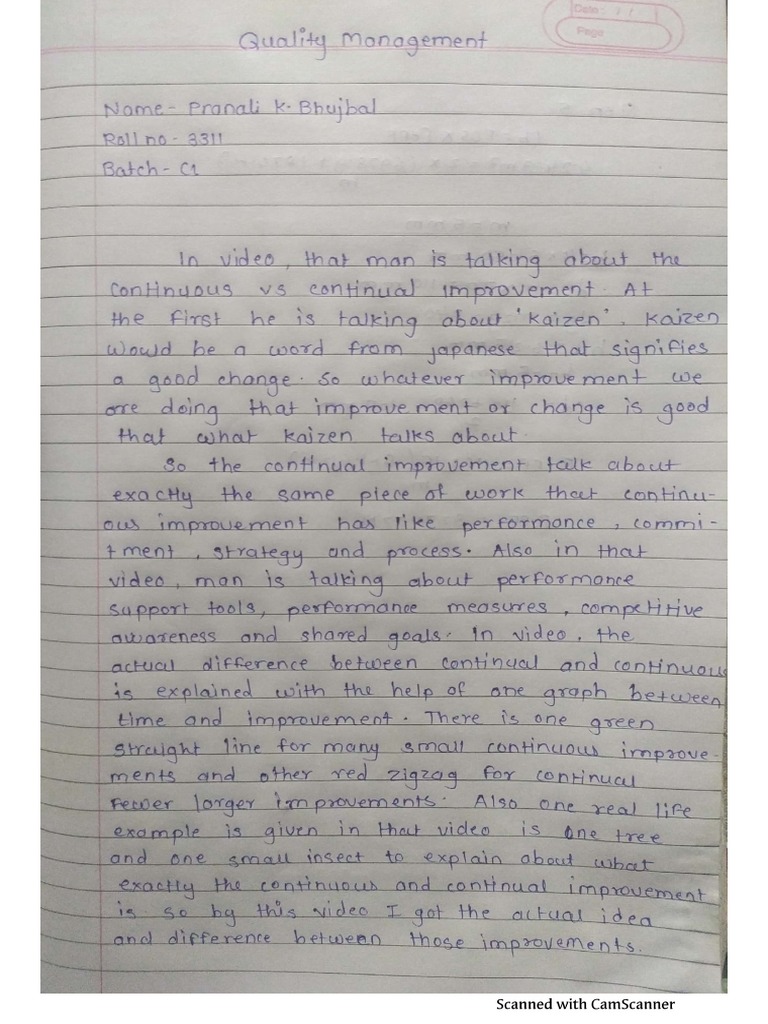 Date:
Page
Quality Management
Name- Pranali K. Bhujbal
Roll no - 3311
Batch - C1
In video, that man is talking about the
continuous vs continual improvement. At
the first he is talking about 'kaizen'. Kaizen
would be a word from japanese that signifies
a good change. So whatever improvement we
are doing that improvement or change is good
that what kaizen talks about.
So the continual improvement talk about
exactly the same piece of work that continu-
ous improvement has like performance, commi-
tment, strategy and process. Also in that
video, man is talking about performance
support tools, performance measures, competitive
awareness and shared goals. In video, the
actual difference between continual and continuous
is explained with the help of one graph between
time and improvement. There is one green
straight line for many small continuous improve-
ments and other red zigzag for continual
fewer larger improvements. Also one real life
example is given in that video is one tree
and one small insect to explain about what
exactly the continuous and continual improvement
is. so by this video I got the actual idea
and difference between those improvements.
Scanned with CamScanner